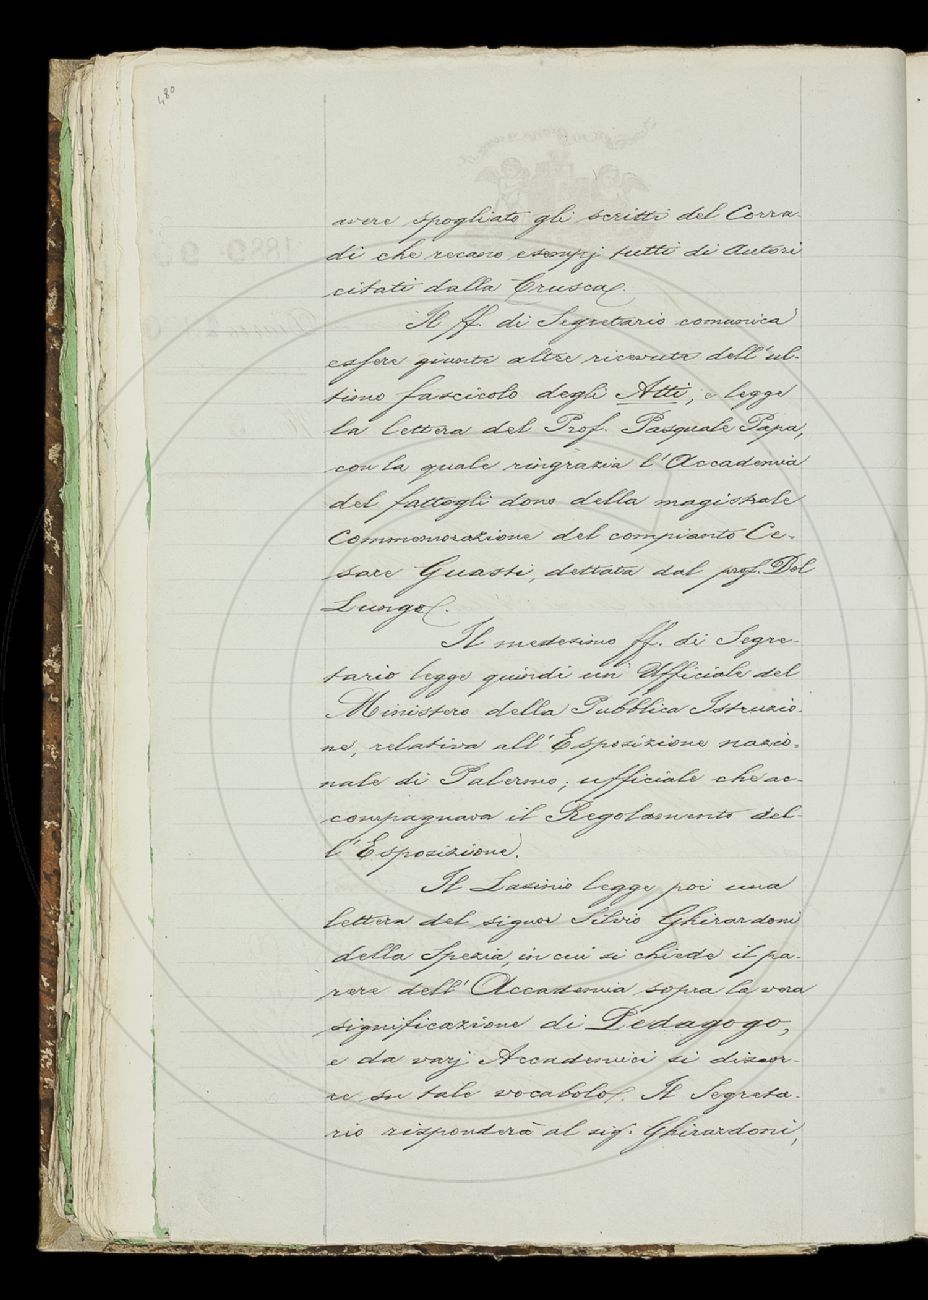 480
avere spogliato gli scritti del Corra-
di che recano esempj tutti di Autori
citati dalla Crusca.
Il ff. di Segretario comunica
essere giunte altre ricevute dell'ul-
timo fascicolo degli Atti, e legge
la lettera del Prof. Pasquale Papa,
con la quale ringrazia l'Accademia
del fattogli dono della magistrale
Commemorazione del compianto Ce-
sare Guasti, dettata dal prof. Del
Lungo.
Il medesimo ff. di Segre-
tario legge quindi un Ufficiale del
Ministero della Pubblica Istruzio-
ne, relativa all'Esposizione nazio-
nale di Palermo; ufficiale che ac-
compagnava il Regolamento del-
l'Esposizione.
Il Lasinio legge poi una
lettera del signor Silvio Ghirardoni
della Spezia, in cui si chiede il pa-
rere dell'Accademia sopra la vera
significazione di Pedagogo,
e da varj Accademici si discor-
re su tale vocabolo. Il Segreta-
rio risponderà al sig. Ghirardoni,